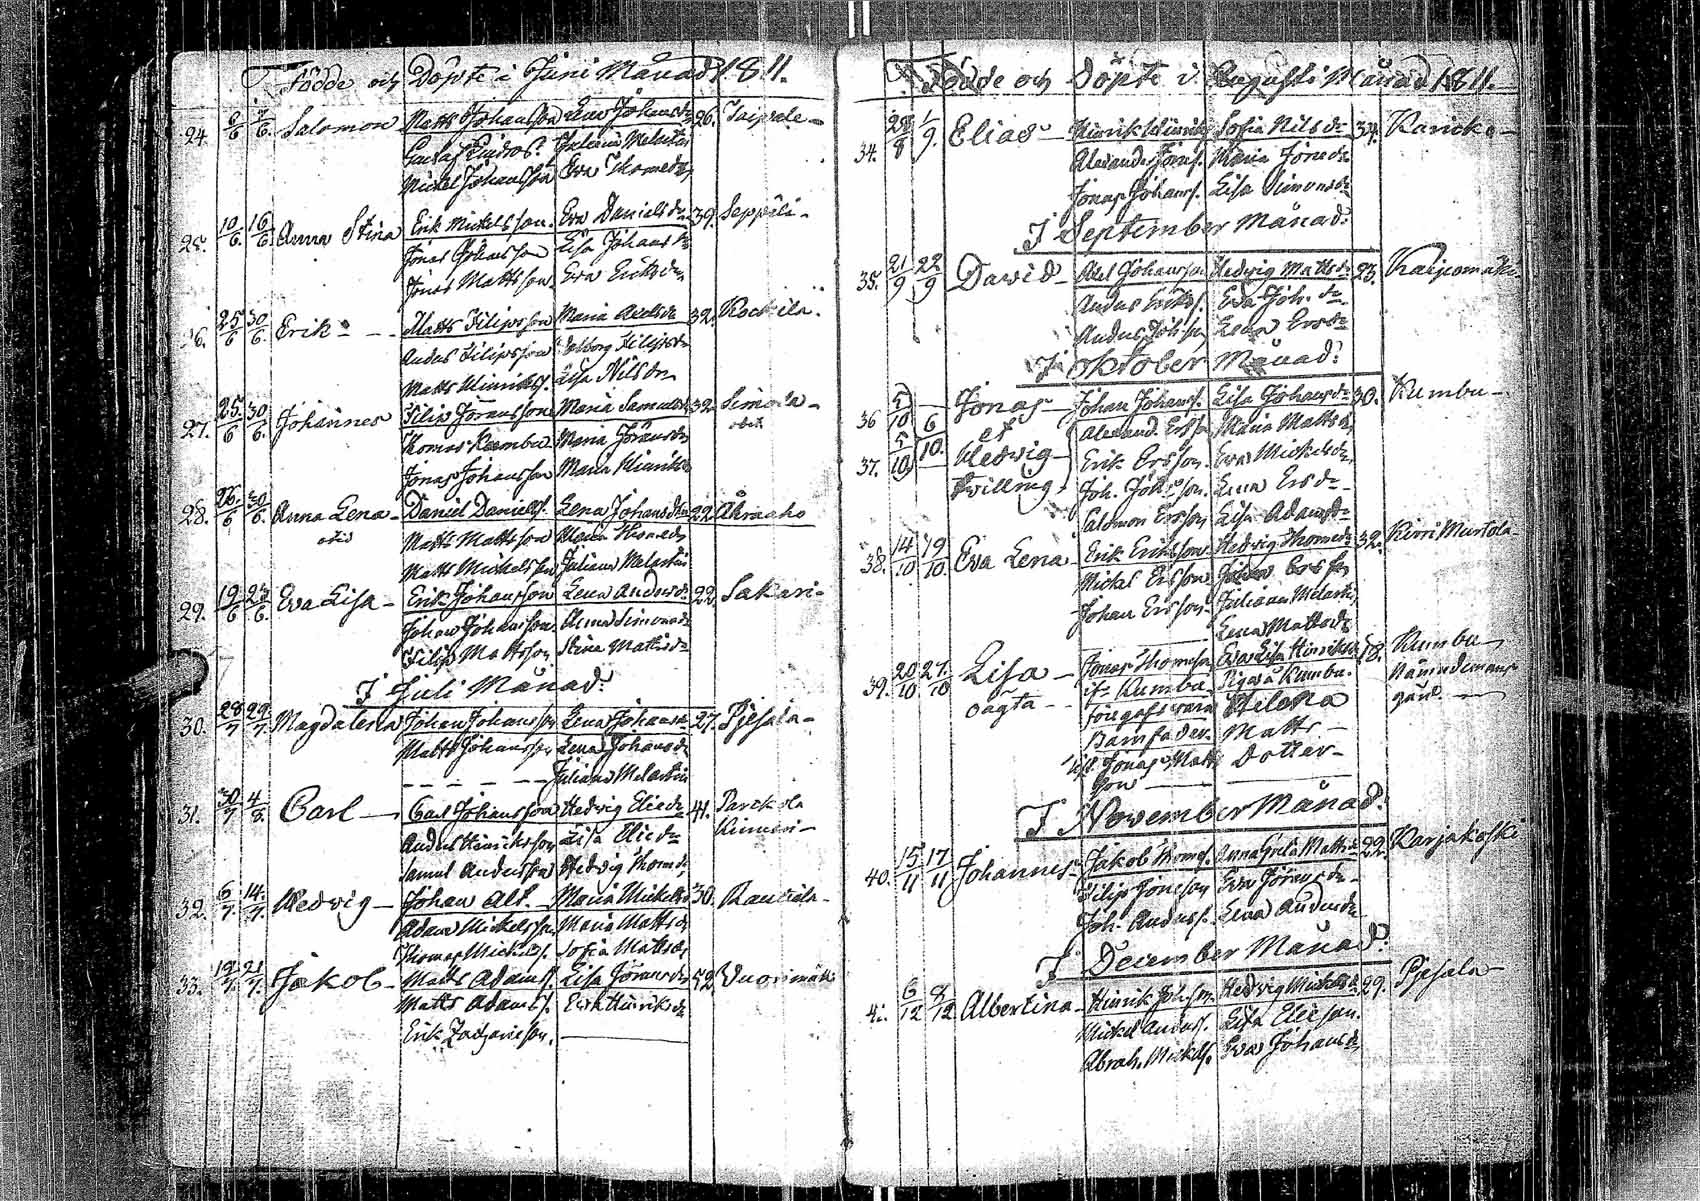 Födde och Döpte i Juni Månad 1811.
24. 2/6 /6. Salomon Matts Johansson Lena Johansdr 26. Taipale
Gustaf Juliana Melartin
Michel Johansson Eva Thomedr
25. 10/6. 16/6 Anna Stina Erik Michelsson. Eva Danielsdr 39. Seppälä
Jonas Johansson Lisa Johansdr
Jonas Mattsson Eva Eriksdr
26. 25/6 30/6. Erik Matts Filipsson Maria Axelsdr 32. Rockila.
Anders Filipsson Walborg Filipsdr
Matts Hinrikss. Lisa Nilsdr
27. 25./6 30/6. Johannes Filip Jöransson Maria Samuelsdr 32 Simola
Thomas Maria Jöransdr obiit
Jonas Johansson Maria Hinriksdr
28. 26./6 30/6. Anna Lena Daniel Daniels. Lena Johansdr 22. Ahraaho
Matts Mattsson Maria Thomedr
Matts Michelsson Juliana Melartin
29. 19/6 23/6. Eva Lisa Erik Johansson Lena Andersdr 22. Sakari
Johan Johansson. Anna Simonsdr
Filip Mattsson Stina Mattsdr
I Juli Månad:
30. 28/7 29/7. Magdalena Johan Johansson Lena Johansdr 27. Pjesala
Matts Johansson Lena Johansdr
Juliana Melartin
31. 30/7 4/8. Carl Carl Johansson Hedvig Eliedr 41. Parckola
Anders Hinriksson Lisa Eliedr Kinnari
Samuel Andersson Hedvig Thomedr
32. 6/7. 14./7. Hedvig Johan Alf. Maria Michelsdr 30. Rautiala
Adam Michelsson Maria Mattsdr
Thomas Michels. Sofia Mattsdr
33. 19/7. 21/7. Jakob Matts Adams. Lisa Jöransdr 42 Vuorimatti
Matts Adams. Eva Hinriksdr
Erik Zachariesson.
Födde och Döpte i Augusti Månad 1811.
34. 28/8 1/9. Elias Hinrik Hinriks Sofia Nilsdr 34. Karicko
Alexander Jöns. Maria Jönedr
Jonas Johans. Lisa Simonsdr
I September Månad:
35. 21/9 22/9 David Axel Johansson Hedvig Mattsdr 23. Kaipomäki
Anders Eriks. Eva Joh. dr
Anders Johsson Lena Ersdr
I Oktober Månad:
36 5/10 6 Jonas Johan Johans. Lisa Johansdr 30. Kumbu
et Alexand. Ersson Maria Mattsdr
37. 5/10 10. Hedvig Erik Ersson. Eva Michelsdr
tvilling Joh. Johsson. Lena Ersdr
Salomon Ersson Lisa Adamsdr
38. 14/10 19/10. Eva Lena Erik Eriksson Hedvig Thomedr 32. Kirri Murtola
Michel Ersson
Johan Ersson Juliana Melartin
Lena Mattsdr
39. 20/10 27/10 Lisa Jonas Thomesson Eva Lisa Hinriksdr 18. Kumbu
oägta if: Kumbu Piga å Kumbu. Nämndemans
föregafs vara Helena gård.
Barnfader Matts
Jonas Matts Dotter
son
I November Månad:
40. 15/11 17/11 Johannes Jakob Thomes. Anna Greta Mattsdr 22. Karjakoski
Filip Joneson Eva Jöransdr
Joh. Anders. Lena Andersdr
I December Månad:
41. 6/12 8/12 Albertina Hinrik Johsson. Hedvig Michelsdr 29. Pjesala
Michel Anders. Lisa Elieson.
Abrah. Michels. Eva Johansdr